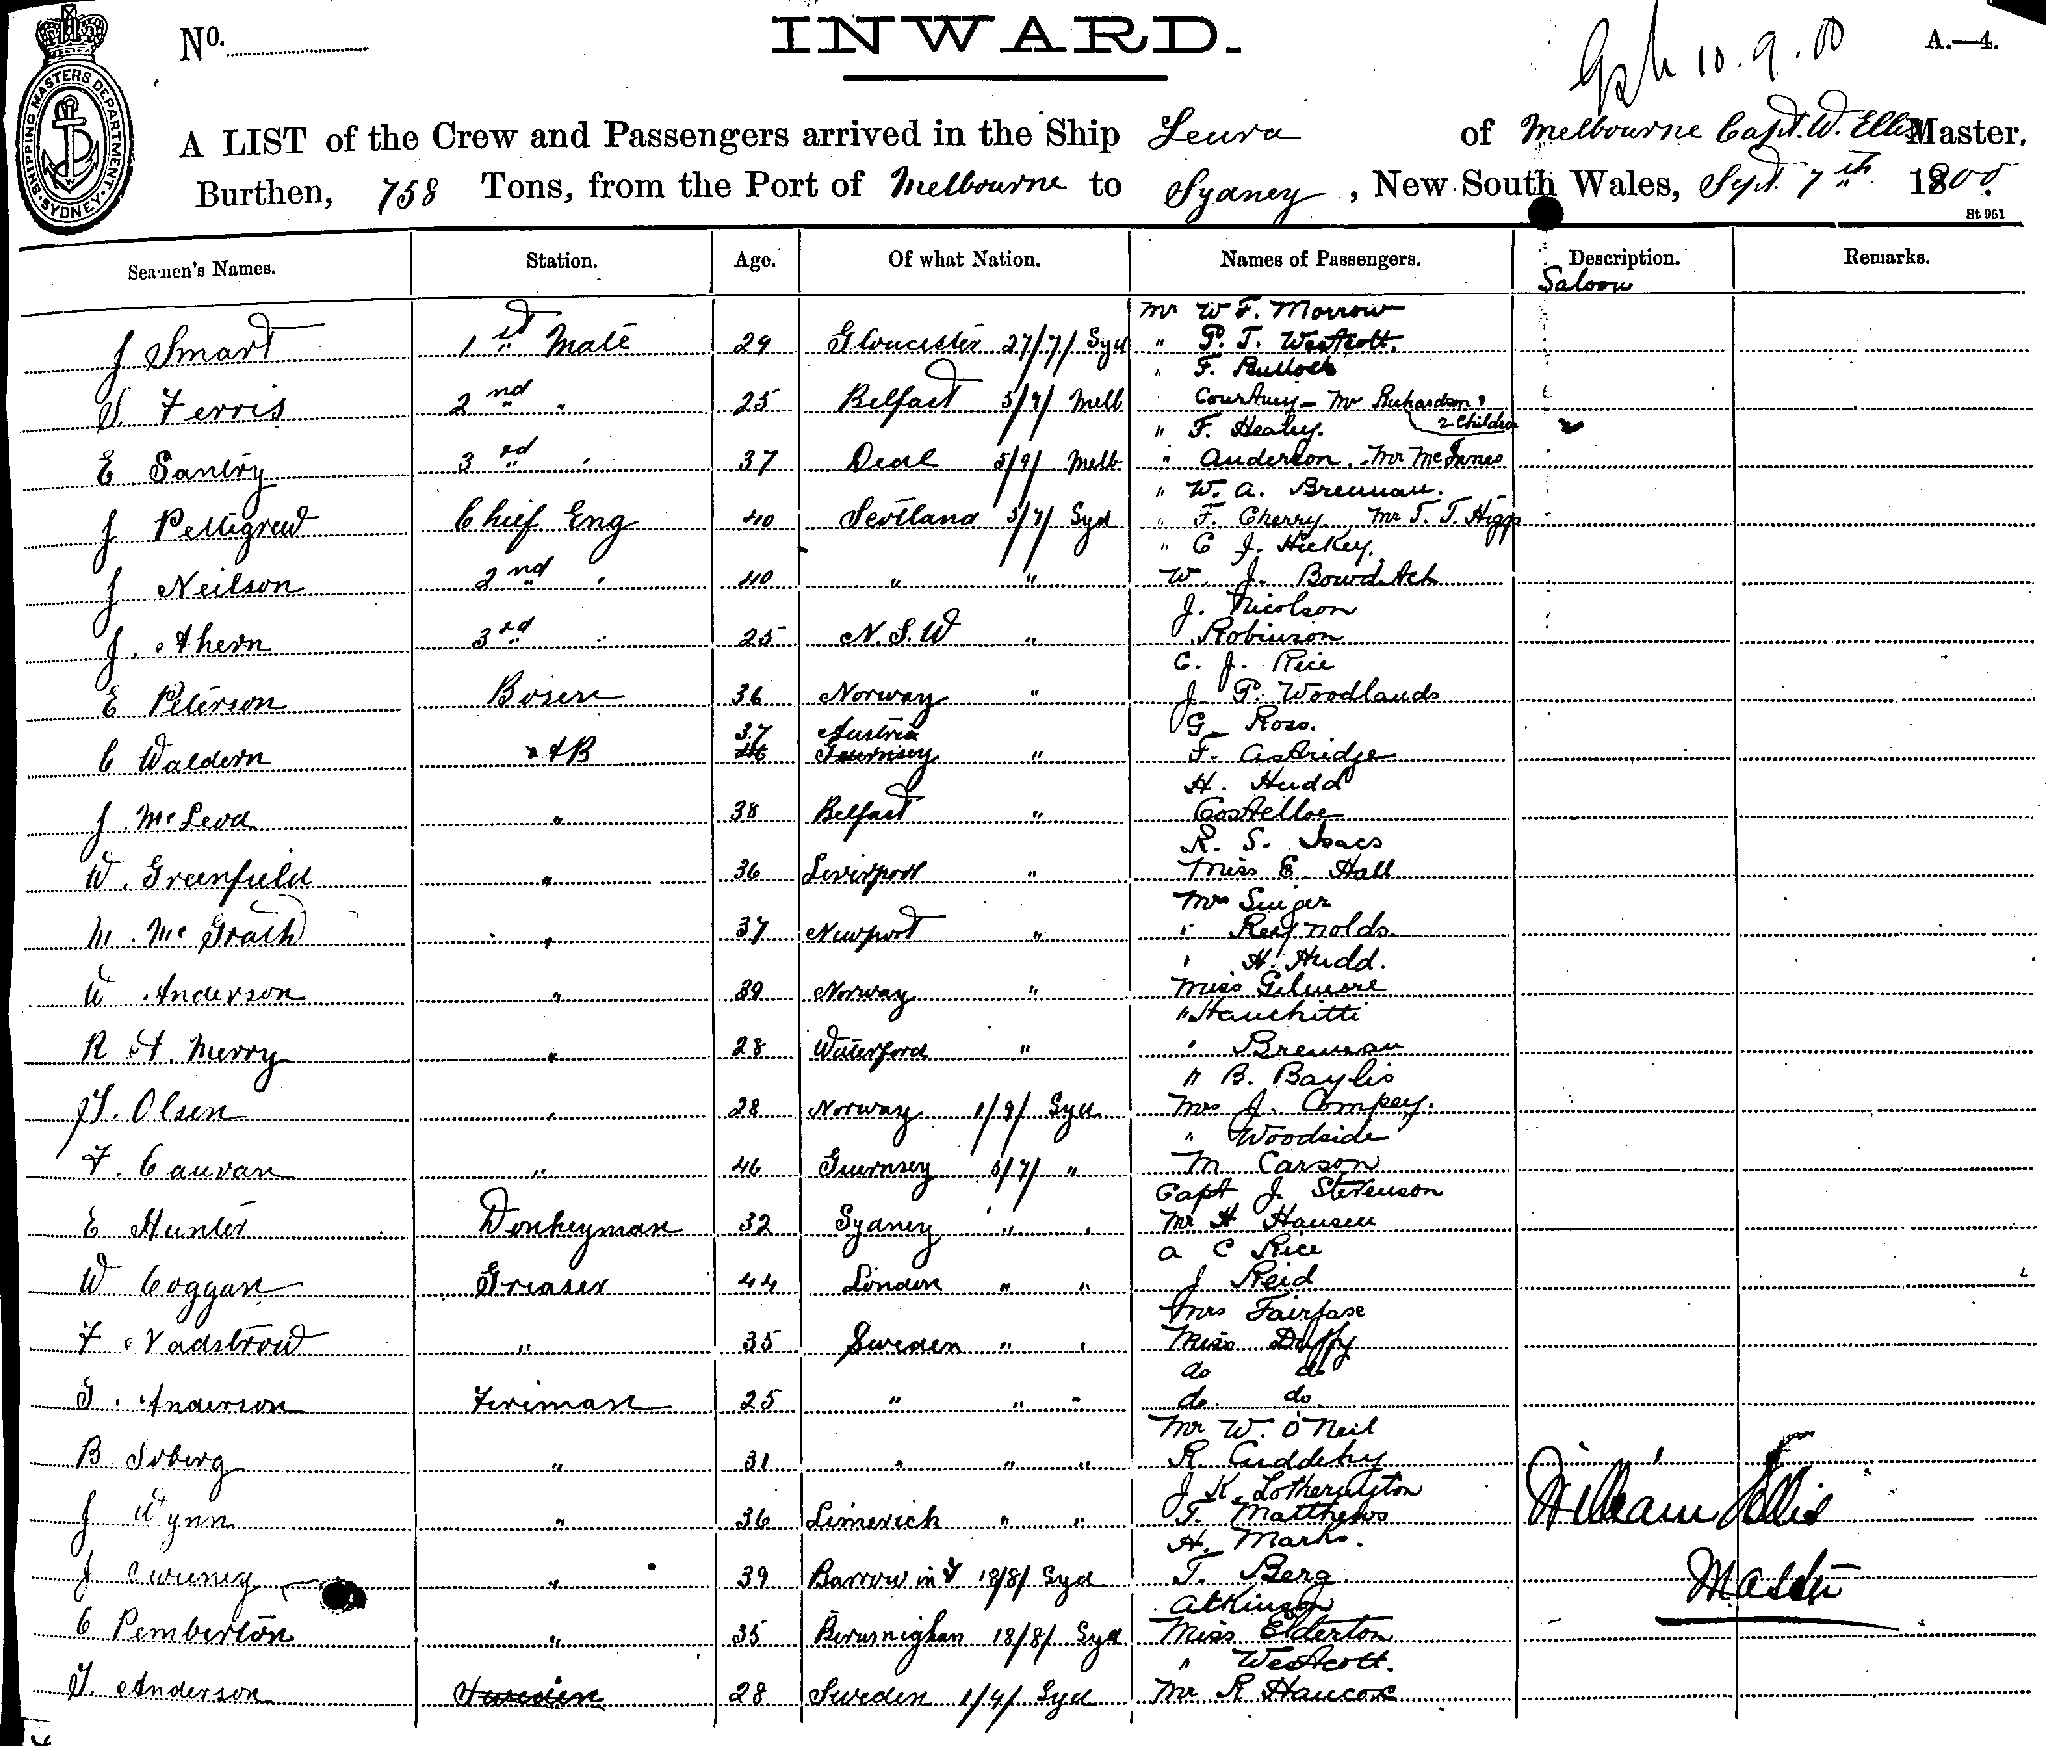 No.
INWARD.
10.9.00
A.—4.
SHIPPING MASTERS DEPARTMENT. SYDNEY.
A LIST of the Crew and Passengers arrived in the Ship Leura of Melbourne Capt. W. Ellis Master.
Burthen, 758 Tons, from the Port of Melbourne to Sydney, New South Wales, Sept 7th 1900.
St 961
Seamen's Names. Station. Age. Of what Nation. Names of Passengers. Description. Remarks.
Saloon
Mr W. F. Morrow
J Smart 1st Mate 29 Gloucester 27/7/ Syd " P. T. Westcott.
" F. Bullock
S. Ferris 2nd " 25 Belfast 5/9/ Melb Courtney - Mr Richardson &
2 Children
" F. Healey.
E Santry 3rd " 37 Deal 5/9/ Melb " Anderson. Mr McInnes
" W. A. Brennan.
J Pettigrew Chief Eng 40 Scotland 5/7/ Syd " F. Cherry Mr T. J. Higgs
" C J. Hickey.
J Neilson 2nd " 40 " " W J. Bowditch
J. Nicolson
J. Ahern 3rd " 25 N.S.W " Robinson
C. J. Rice
E Peterson Bosen 36 Norway " J P. Woodlands
G Ross.
37 Austria
C Waldern AB 46 Guernsey " F. Astridge
H. Hudd
J McLeod " 38 Belfast " Costelloe
R. S. Isacs
W. Greenfield " 36 Liverpool " Miss E Hall
Mrs Singer
M. McGrath " 37 Newport " " Reynolds
" H. Hudd.
W Anderson " 39 Norway " Miss Gilmore
"
R A. Merry " 28 Waterford " " Brennan
" B. Baylis
T. Olsen " 28 Norway 1/9/ Syd Mrs J. Compey.
" Woodside
F. Cauvan " 46 Guernsey 5/7/ " M Carson
Capt J. Stevenson
E Hunter Donkeyman 32 Sydney " " Mr H Hansen
A C Rice
W Coggan Greaser 44 London " " J Reid
Mrs Fairfax
F " 35 Sweden " " Miss Duffy
do do
G. Anderson Fireman 25 " " " do. do.
Mr W. O'Neil
B " 31 " " " R. Cuddehy
J K. Lotherington
J Wynn " 36 Limerick " " T. Matthews
William Ellis
H. Marks.
J Sweeney " 39 Barrow in F 18/8/ Syd T. Berg
Master
Atkinson
C Pemberton " 35 Birmnighan 18/8/ Syd Miss Elderton
" Westcott.
T. Anderson Sweden 28 Sweden 1/9/ Syd Mr R Hancox